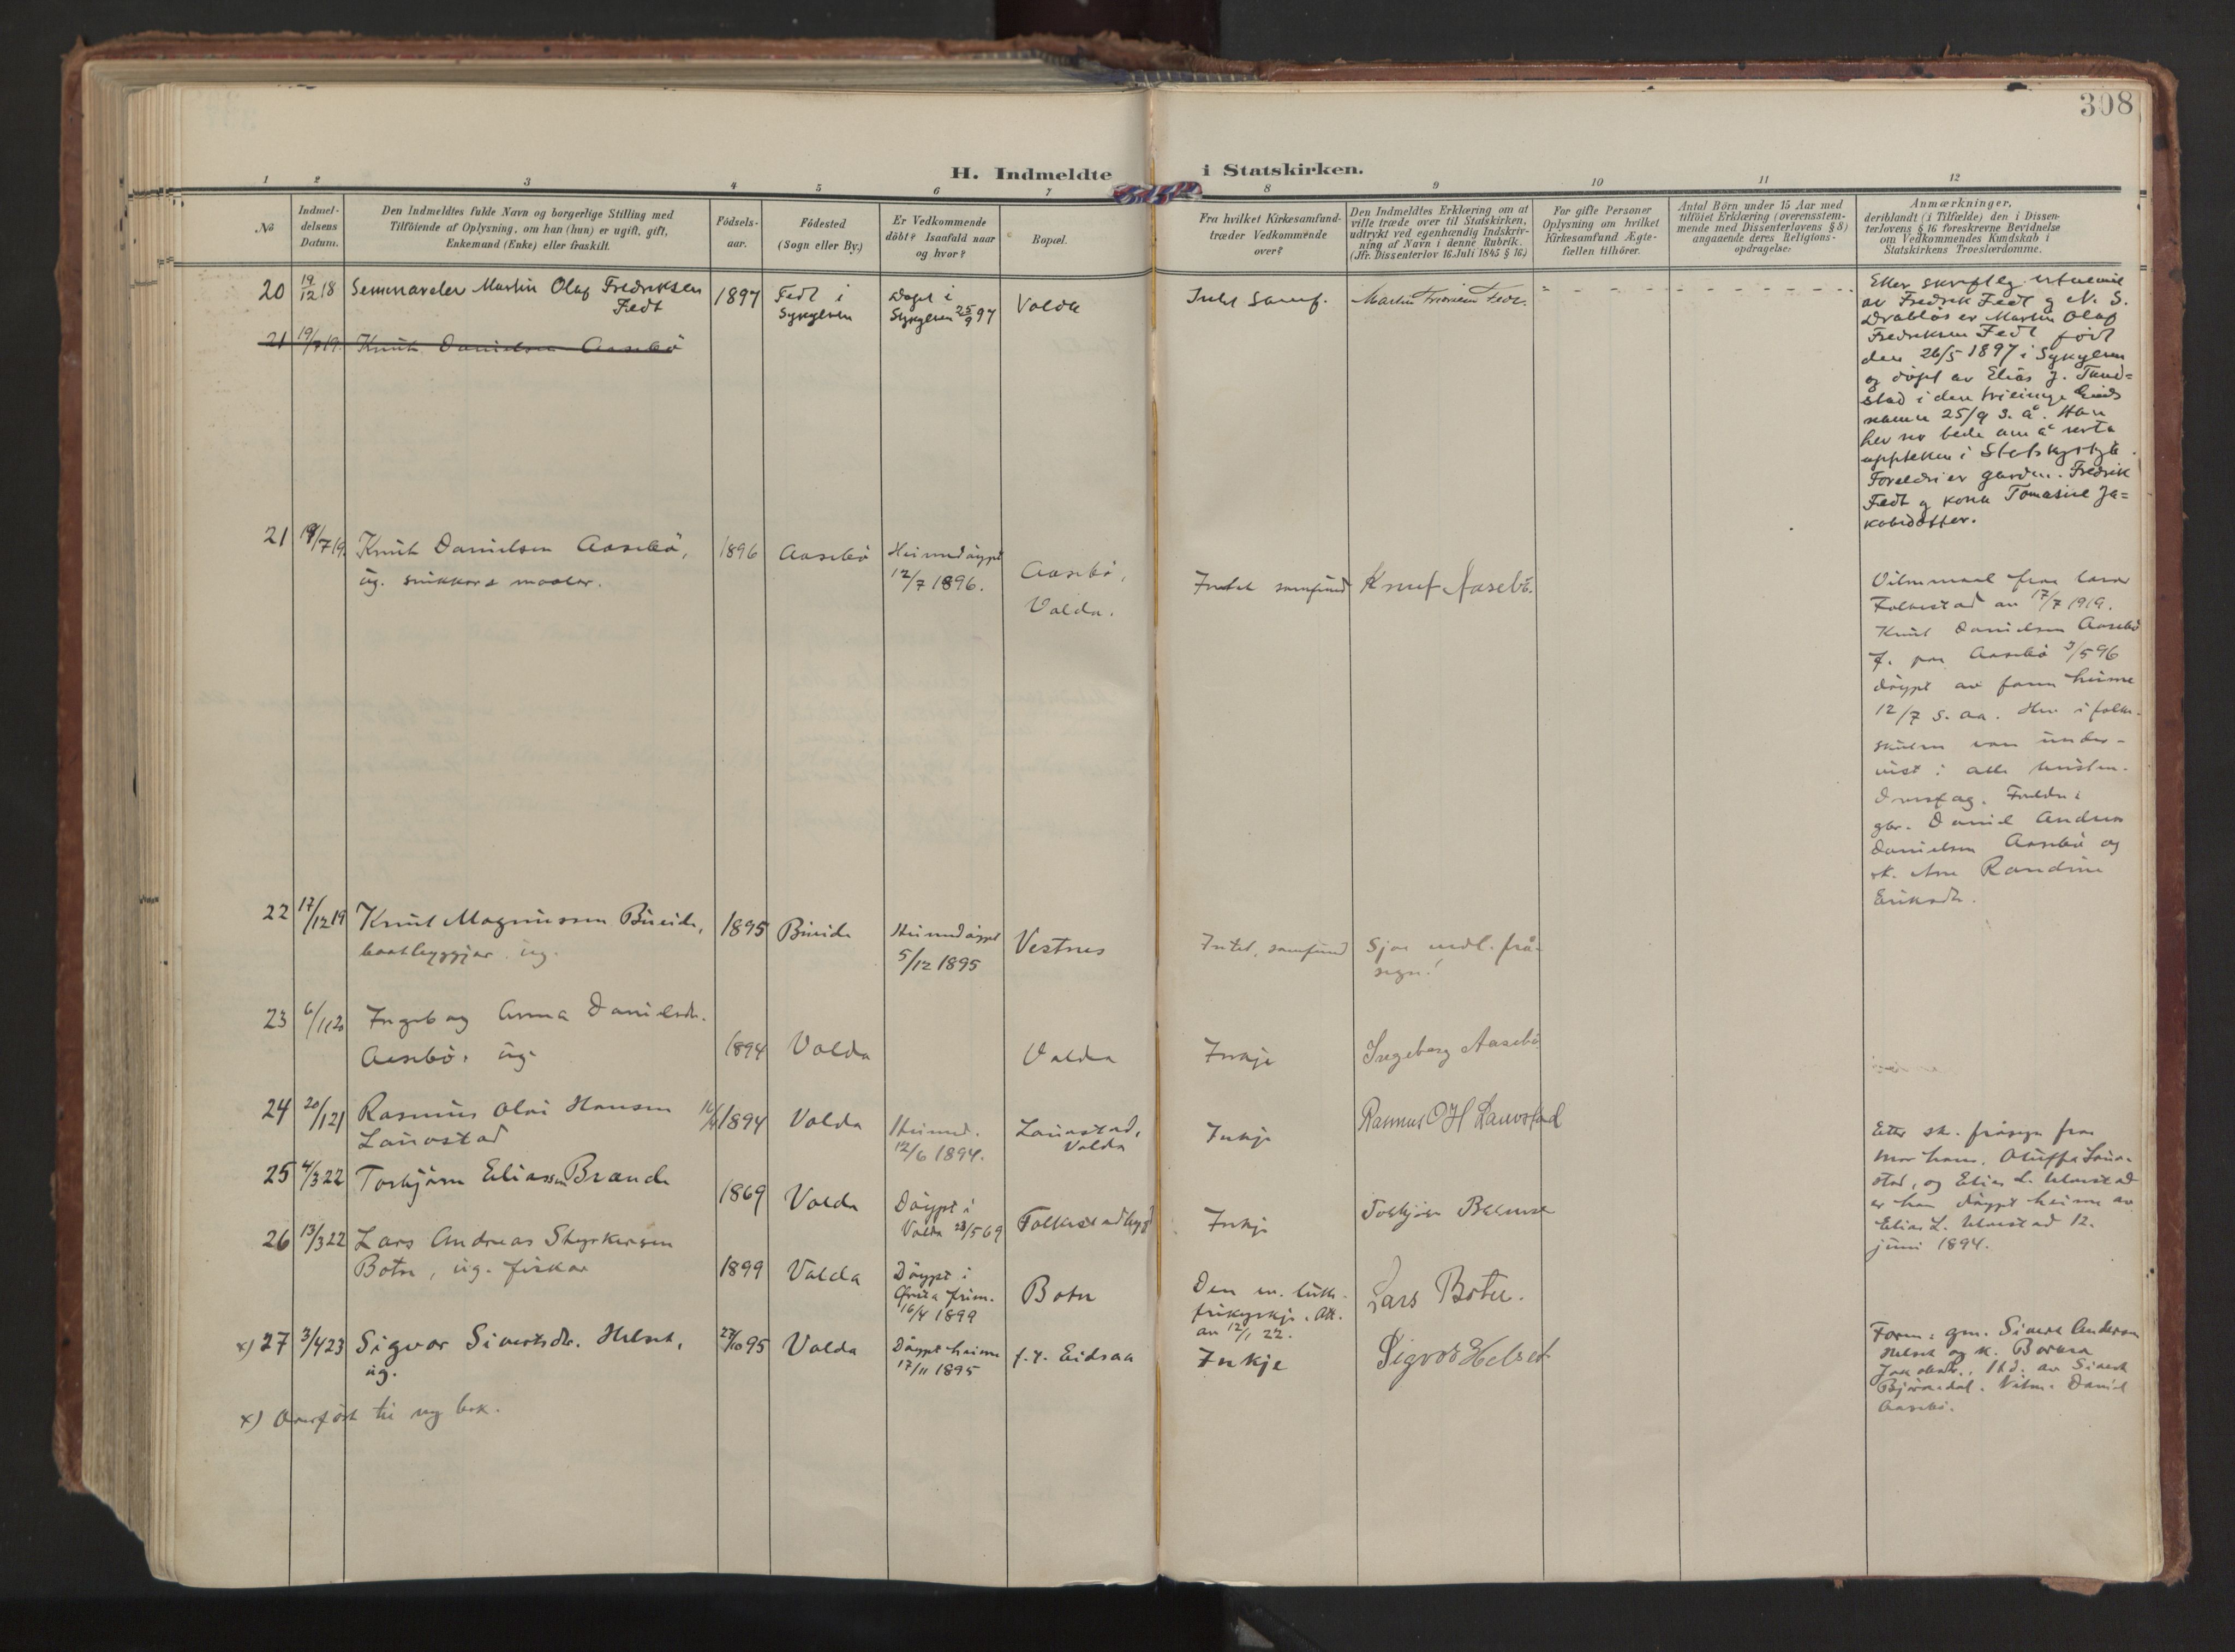 308
H. Indmeldte i Statskirken.
1 2 3 4 5 6 7 8 9 10 11 12
No
Indmel-
delsens
Datum.
Den Indmeldtes fulde Navn og borgerlige Stilling med
Tilföiende af Oplysning, om han (hun) er ugift, gift,
Enkemand (Enke) eller fraskilt.
Födsels-
aar.
Födested
(Sogn eller By.)
Er Vedkommende
döbt? Isaafald naar
og hvor?
Bopæl.
Fra hvilket Kirkesamfund-
træder Vedkommende
over?
Den Indmeldtes Erklæring om at
ville træde over til Statskirken,
udtrykt ved egenhændig Indskriv-
ning af Navn i denne Rubrik.
(Jfr. Dissenterlov 16. Juli 1845 § 16.)
For gifte Personer
Oplysning om hvilket
Kirkesamfund Ægte-
fællen tilhörer.
Antal Börn under 15 Aar med
tilföiet Erklæring (overensstem-
mende med Dissenterlovens § 8)
angaaende deres Religions-
opdragelse:
Anmærkninger,
deriblandt (i Tilfælde) den i Dissen-
terlovens § 16 foreskrevne Bevidnelse
om Vedkommendes Kundskab i
Statskirkens Troeslærdomme.
20 19/12 18 Martin Olaf Fredriksen
Fedt
1897
Fedt i
Sykylven
Døpt i
Sykylven 25/9 97
Volda
Intet Samf.
Martin Fedt.
Etter skriftleg
av Fredrik Fedt g N. S.
Drabløs er Martin Olaf
Fredriksen Fedt født
den 26/5 1897 i Sykylven
og døpt av Elias J.
stad i den
25/9 s. å. Han
hev no bede um å verta
uppteken i Statskyrkja.
Foreldri er Fredrik
Fedt g kona Tomasine Ja=
kobsdotter.
21 19/7 19. Knut Danielsen Aasebö
21 19/7 19. Knut Danielsen Aasebö,
ug. snikkar & maalar.
1896
Aasebö
Heimedöypt
12/7 1896.
Aasebö,
Volda.
Intet samfund
Knut Aasebö.
Vitnemaal fraa lærar
Folkestad av 17/7 1919.
Knut Danielsen Aasebö
f. paa Aasebö 3/5 96
döypt av faren heime
12/7 s. aa. Hev i folke-
skulen vore under-
vist i alle kristen-
domsfag. Foreldre:
gbr. Daniel Andreas
Danielsen Aasebö og
k. Ane Randine
Eriksdtr.
22 17/12 19 Knut Magnussen Bueide,
baatbyggjar. ug.
1895
Bueide
Heimedöypt
5/12 1895
Vestnes
Intet samfund
Sjaa vedl. frå-
segn!
23 6/1 20 Ingeborg Anna Danielsdtr.
Aasebö. ug.
1894
Volda
Volda
Inkje
Ingeborg Aasebö
24 20/1 21 Rasmus Olai Hansen
Lauvstad
1894
Volda
Heimed.
12/6 1894.
Lauvstad,
Volda
Inkje
Rasmus O H Lauvstad
Etter sk. fråsegn fraa
mor hans, Oluffa Lauv-
stad, og Elias L. Ulvestad
er han döypt heime av
Elias L. Ulvestad 12.
juni 1894.
25 4/3 22 Torbjörn Eliassen Braude
1869
Volda
Döypt i
Volda 23/5 69
Folkestadbygd
Inkje
26 13/3 22 Lars Andreas Styrkarsen
Botn, ug. fiskar
1899
Volda
Döypt i
16/4 1899
Botn
Den ev. luth.
frikyrkje. Att.
av 12/1 22.
Lars Botn.
x) 27 3/4 23 Sigvor Sivertsdtr. Helset,
ug.
27/10 95
Volda
Döypt heime
17/11 1895
f. t. Eidsaa
Inkje
Sigvor Helset
Foreld: gm. Sivert Anderssen
Helset og k. Barbra
Jakobsdtr., Hd. av Sivert
Björnedal. Vitne: Daniel
Aasebö.
x) Overfört til ny bok.